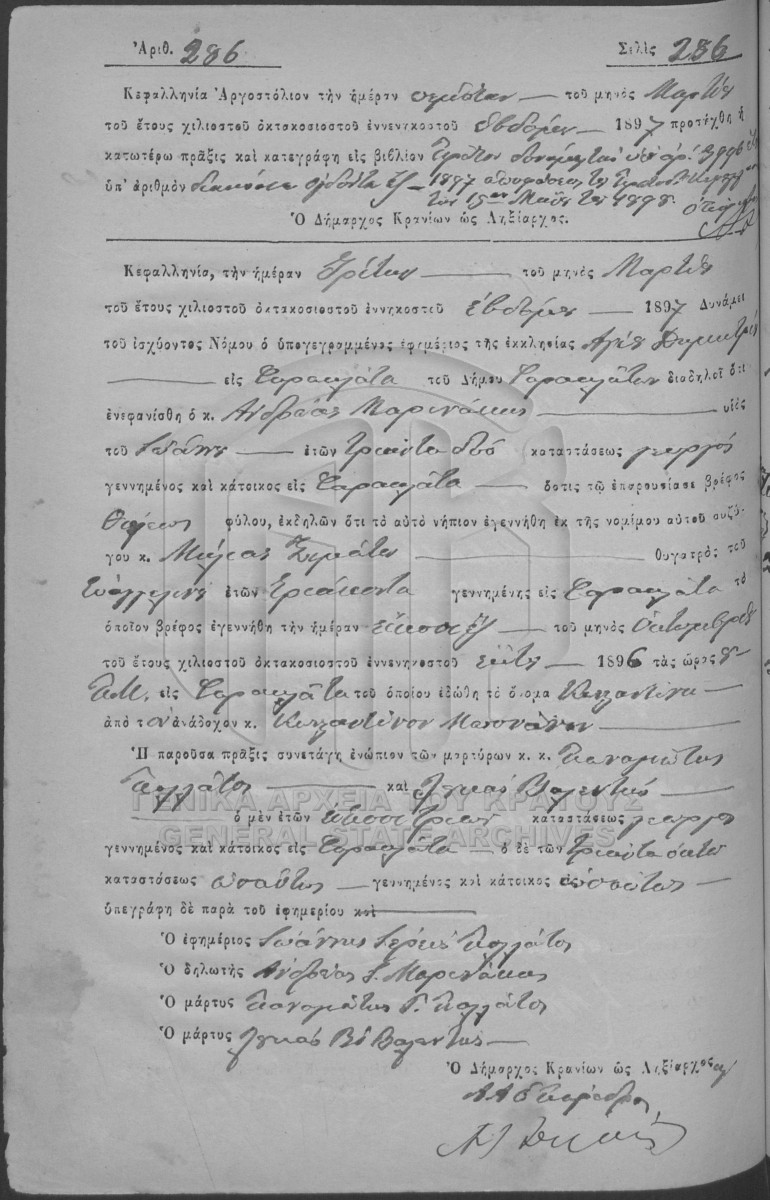 Ἀριθ. 286 Σελὶς 286
Κεφαλληνία Ἀργοστόλιον τὴν ἡμέραν πέμπτην τοῦ μηνὸς Μαρτίου
τοῦ ἔτους χιλιοστοῦ ὀκτακοσιοστοῦ ἐννενηκοστοῦ ἑβδόμου 1897 προτήχθη ἡ
κατωτέρω πρᾶξις καὶ κατεγράφη εἰς βιβλίον
ὑπ' ἀριθμὸν διακόσια ὀγδοήκοντα ἕξ 1897 ἀποφάσεως
τῆς 15 Μαΐου 1898
Ὁ Δήμαρχος Κρανίων ὡς Ληξίαρχος.
Κεφαλληνία, τὴν ἡμέραν τρίτην τοῦ μηνὸς Μαρτίου
τοῦ ἔτους χιλιοστοῦ ὀκτακοσιοστοῦ ἐννηκοστοῦ ἑβδόμου 1897 Δυνάμει
τοῦ ἰσχύοντος Νόμου ὁ ὑπογεγραμμένος ἐφημέριος τῆς ἐκκλησίας Ἁγίου Δημητρίου
εἰς Φαρακλάτα τοῦ Δήμου Φαρακλάτων διαδηλοῖ ὅτι
ἐνεφανίσθη ὁ κ. Ἀνδρέας Μαρινάκης υἱὸς
τοῦ Ἰωάννου ἐτῶν τριάντα δύο καταστάσεως γεωργὸς
γεννημένος καὶ κάτοικος εἰς Φαρακλάτα ὅστις τῷ ἐπαρουσίασε βρέφος
θήλεως φύλου, ἐκδηλῶν ὅτι τὸ αὐτὸ νήπιον ἐγεννήθη ἐκ τῆς νομίμου αὐτοῦ συζύ-
γου κ. θυγατρὸς τοῦ
Εὐαγγελινοῦ ἐτῶν τριάκοντα γεννημένης εἰς Φαρακλάτα τὸ
ὁποῖον βρέφος ἐγεννήθη τὴν ἡμέραν εἴκοσι ἕξ τοῦ μηνὸς Ὀκτωβρίου
τοῦ ἔτους χιλιοστοῦ ὀκτακοσιοστοῦ ἐννενηκοστοῦ ἕκτου 1896 τὰς ὥρας
π.μ. εἰς Φαρακλάτα τοῦ ὁποίου ἐδώθη τὸ ὄνομα Κωνσταντίνα
ἀπὸ τὸν ἀνάδοχον κ. Κωνσταντῖνον
Ἡ παροῦσα πρᾶξις συνετάγη ἐνώπιον τῶν μαρτύρων κ. κ. Παναγιώτης
Γαλλᾶτος καὶ Λουκᾶς Βαλεντῆς
ὁ μὲν ἐτῶν εἴκοσι τριῶν καταστάσεως γεωργὸς
γεννημένος καὶ κάτοικος εἰς Φαρακλάτα ὁ δὲ τῶν τριάντα ὀκτὼ
καταστάσεως ὡσαύτως γεννημένος καὶ κάτοικος εἰς ὡσαύτως
ὑπεγράφη δὲ παρὰ τοῦ ἐφημερίου καὶ
Ὁ ἐφημέριος Ἰωάννης Ἱερεὺς Γαλλᾶτος
Ὁ δηλωτὴς Ἀνδρέας Ἰ. Μαρινάκης
Ὁ μάρτυς Παναγιώτης Γ. Γαλλᾶτος
Ὁ μάρτυς Λουκᾶς Βαλεντῆς
Ὁ Δήμαρχος Κρανίων ὡς Ληξίαρχος
Α Α ὁ Πάρεδρος
ΓΕΝΙΚΑ ΑΡΧΕΙΑ ΤΟΥ ΚΡΑΤΟΥΣ
GENERAL STATE ARCHIVES